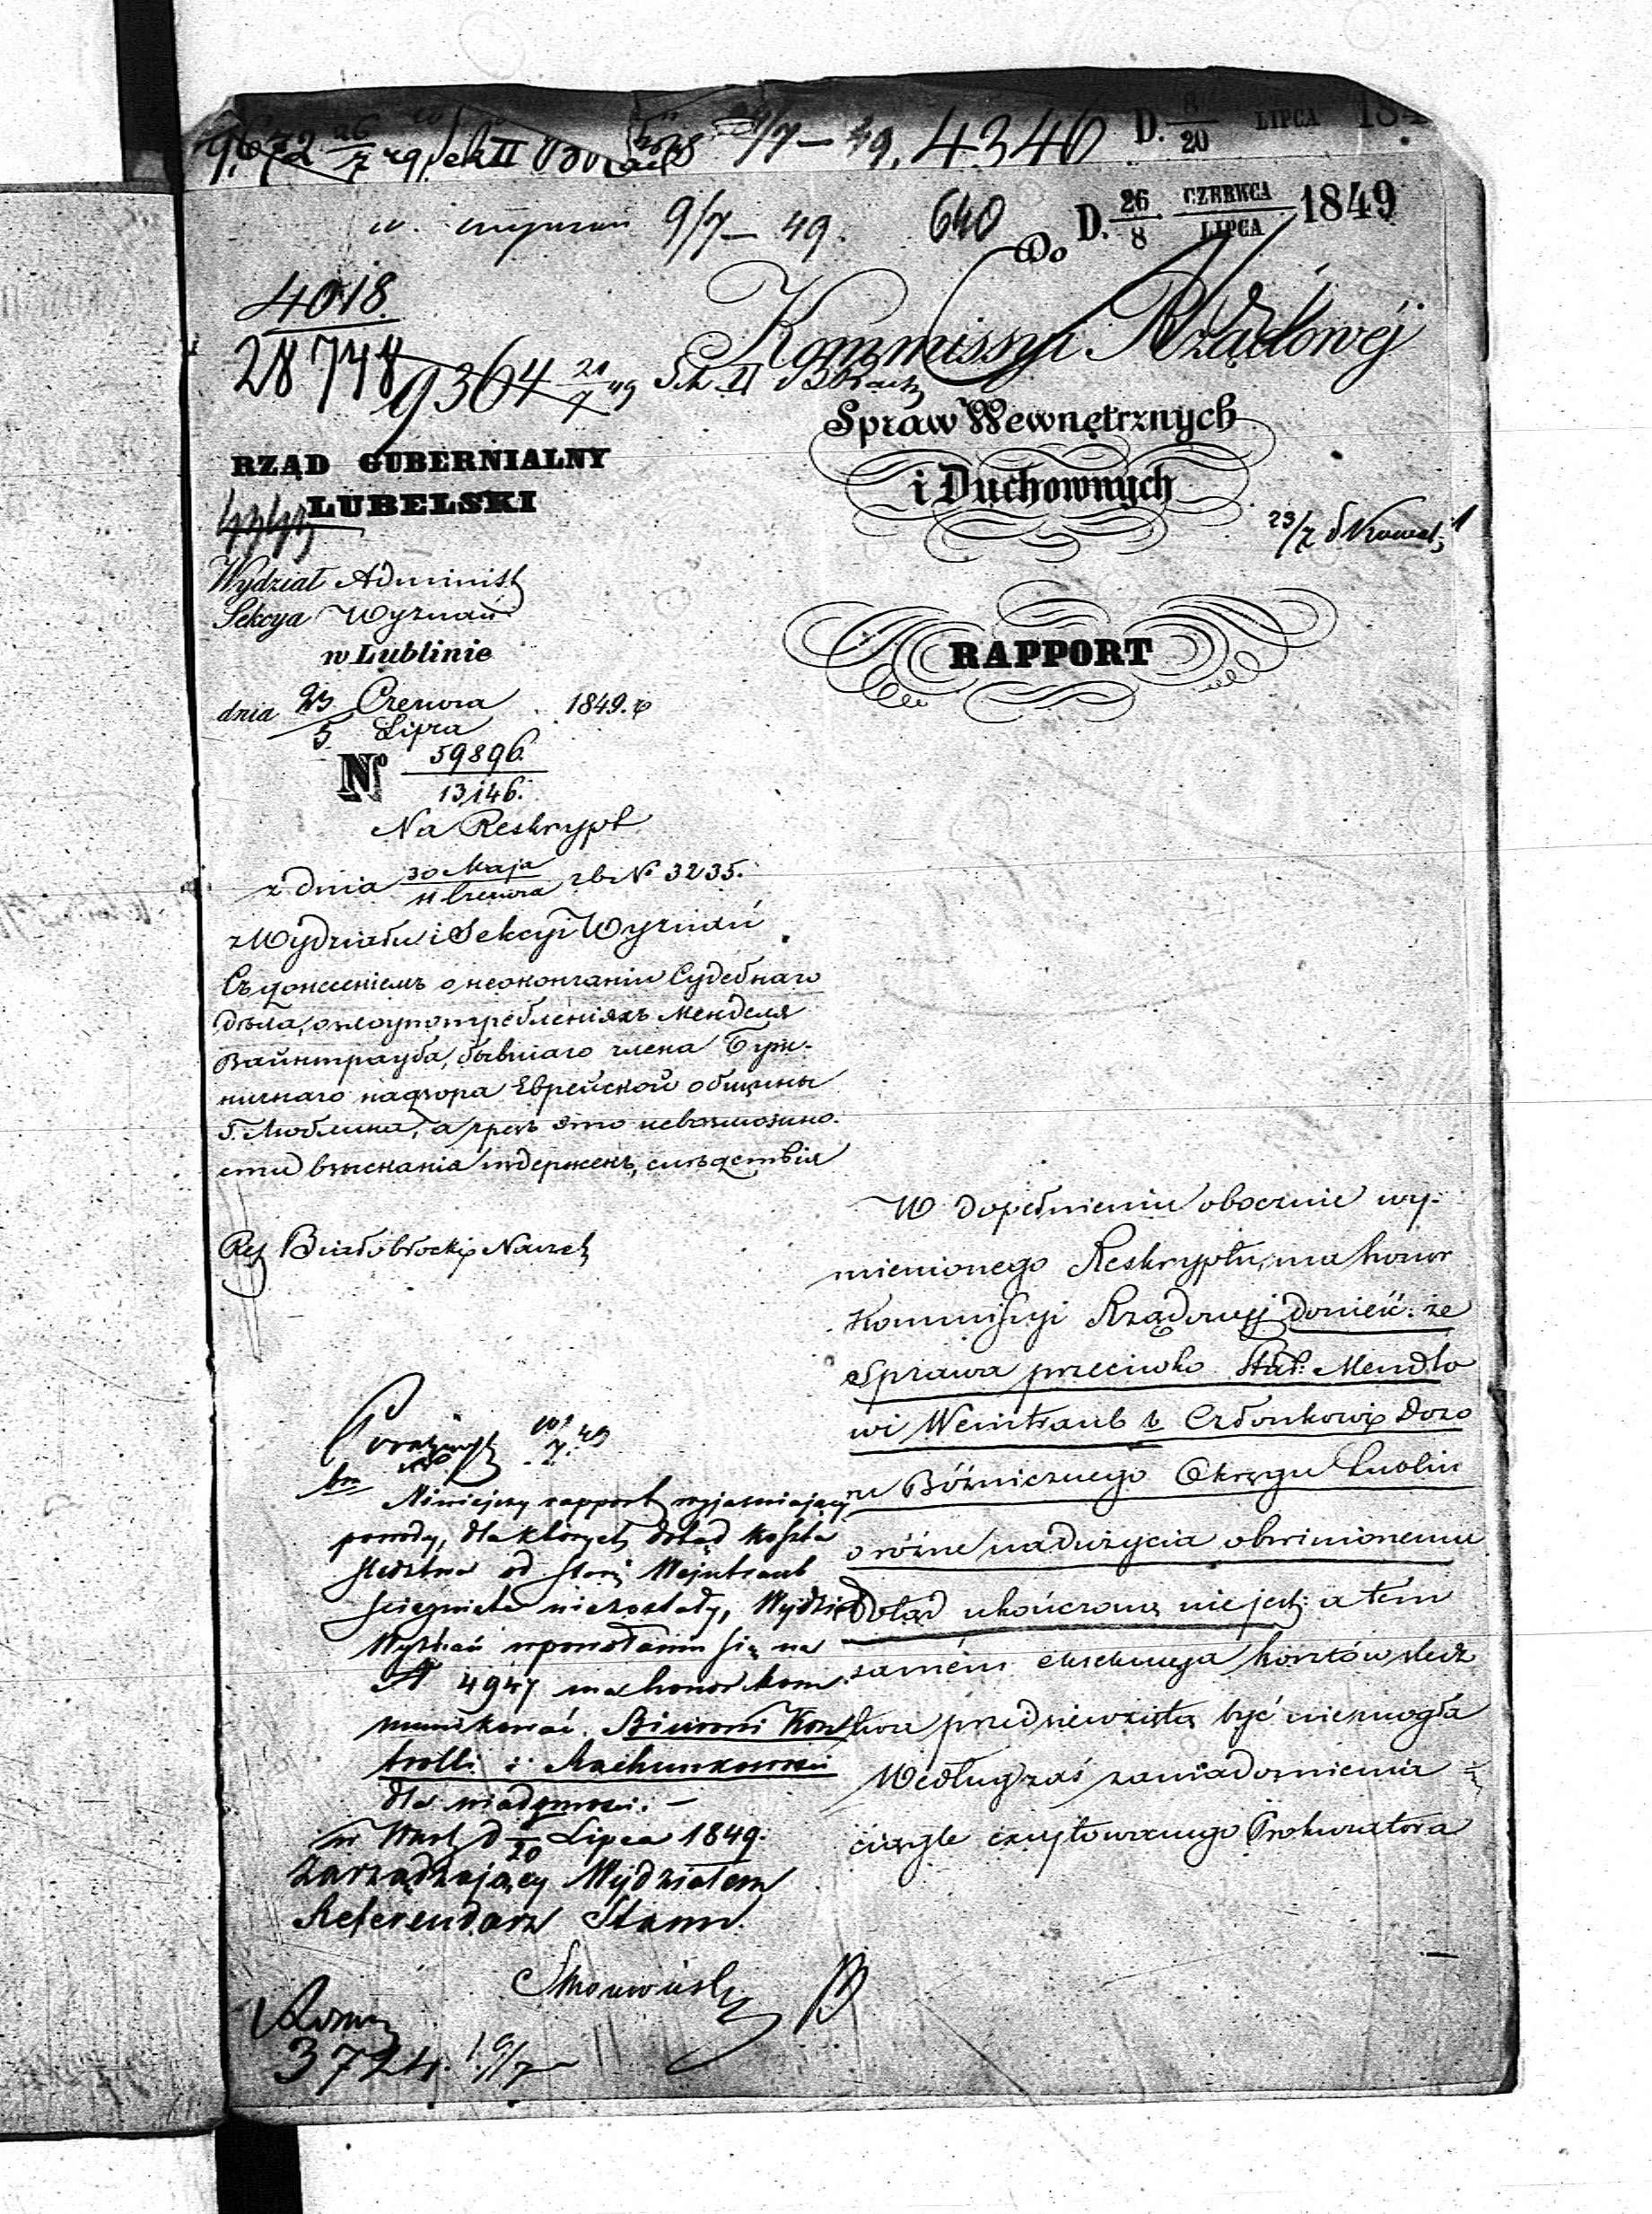 4346 D. 8/20 LIPCA 184
9/7 – 49. 640 D. 26/8 CZERWCA/LIPCA 1849
Do
4018.
28748
9364 21/7 49 Sek II
Kommissyi Rządowéj
Spraw Wewnętrznych
i Duchownych
RZĄD GUBERNIALNY
LUBELSKI
Wydział Administ
Sekcya Wyznań
w Lublinie
dnia 23 Czerwca / 5 Lipca 1849. r
No 59896. / 13146.
Na Reskrypt
z dnia 30 Maja / 11 Czerwca rb No 3235.
z Wydziału i Sekcyi Wyznań
Съ донесеніемъ о неокончаніи Судебнаго
дѣла, о злоупотребленіяхъ Менделя
Вайнтрауба, бывшаго члена Бужничнаго
надзора Еврейской общины
Г. Люблина, а чрезъ это невозможности
взысканія издержекъ, слѣдствія
RAPPORT
W dopełnieniu obocznie wy-
mienionego Reskryptu, ma honor
Kommissyi Rządowej donieść: że
Sprawa przeciwko Star: Mendlo
wi Weintraub b. Członkowi Dozo
ru Bóżniczego Okręgu Lublin
o różne nadużycia obwinionemu
dotąd ukończoną nie jest; a tem
samém exekucya kosztów śledz
twa przedsiewzięta być niemogła
Według zaś zawiadomienia
ciągle excytowanego Prokuratora
Niniejszy rapport wyjasniający
powody, dla których dotąd koszta
sledztwa od staroz Wajntraub
sciągnięte niezostały, Wydział
Wyznań w powołaniu się na
N 4947 ma honor kom
munikować. Biurowi Kon
trolli i Rachunkowości
dla wiadomości. –
w Warsz d 8/20 Lipca 1849.
Zarządzający Wydziałem
Referendarz Stanu
3724. 19/7